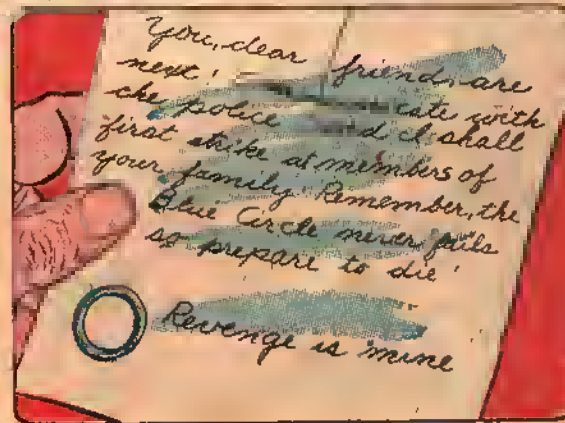 You, dear friend, are
next! cate with
the police d I shall
first strike at members of
your family. Remember, the
Blue Circle never fails
so prepare to die!
Revenge is mine